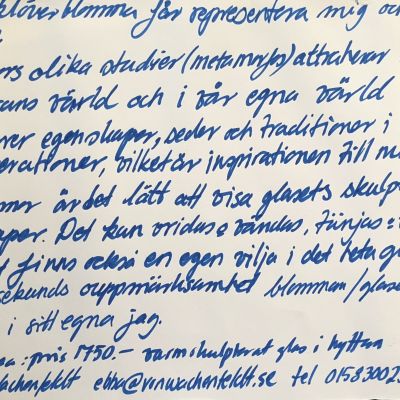 klöverblomma får representera mig oc
ors olika studier (metamorfos) attraherar
rans värld och i vår egna värld
ver egenskaper, seder och traditioner i
erationer, vilket är inspirationen till m
mer är det lätt att visa glasets skulp
aper. Det kan vridas o vändas, tänjas o
t finns också en egen vilja i det heta g
sekunds ouppmärksamhet blomman/glase
i sitt egna jag.
a: pris 1750.- varmskulpterat glas i hyttan
achenfeldt ebba@vonwachenfeldt.se tel 01583002